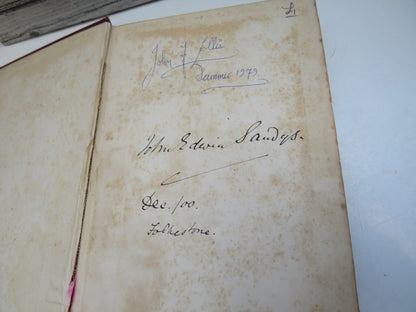 £1
John J Ellis
Summer 1979
John Edwin Sandys.
Dec./00.
Folkestone.